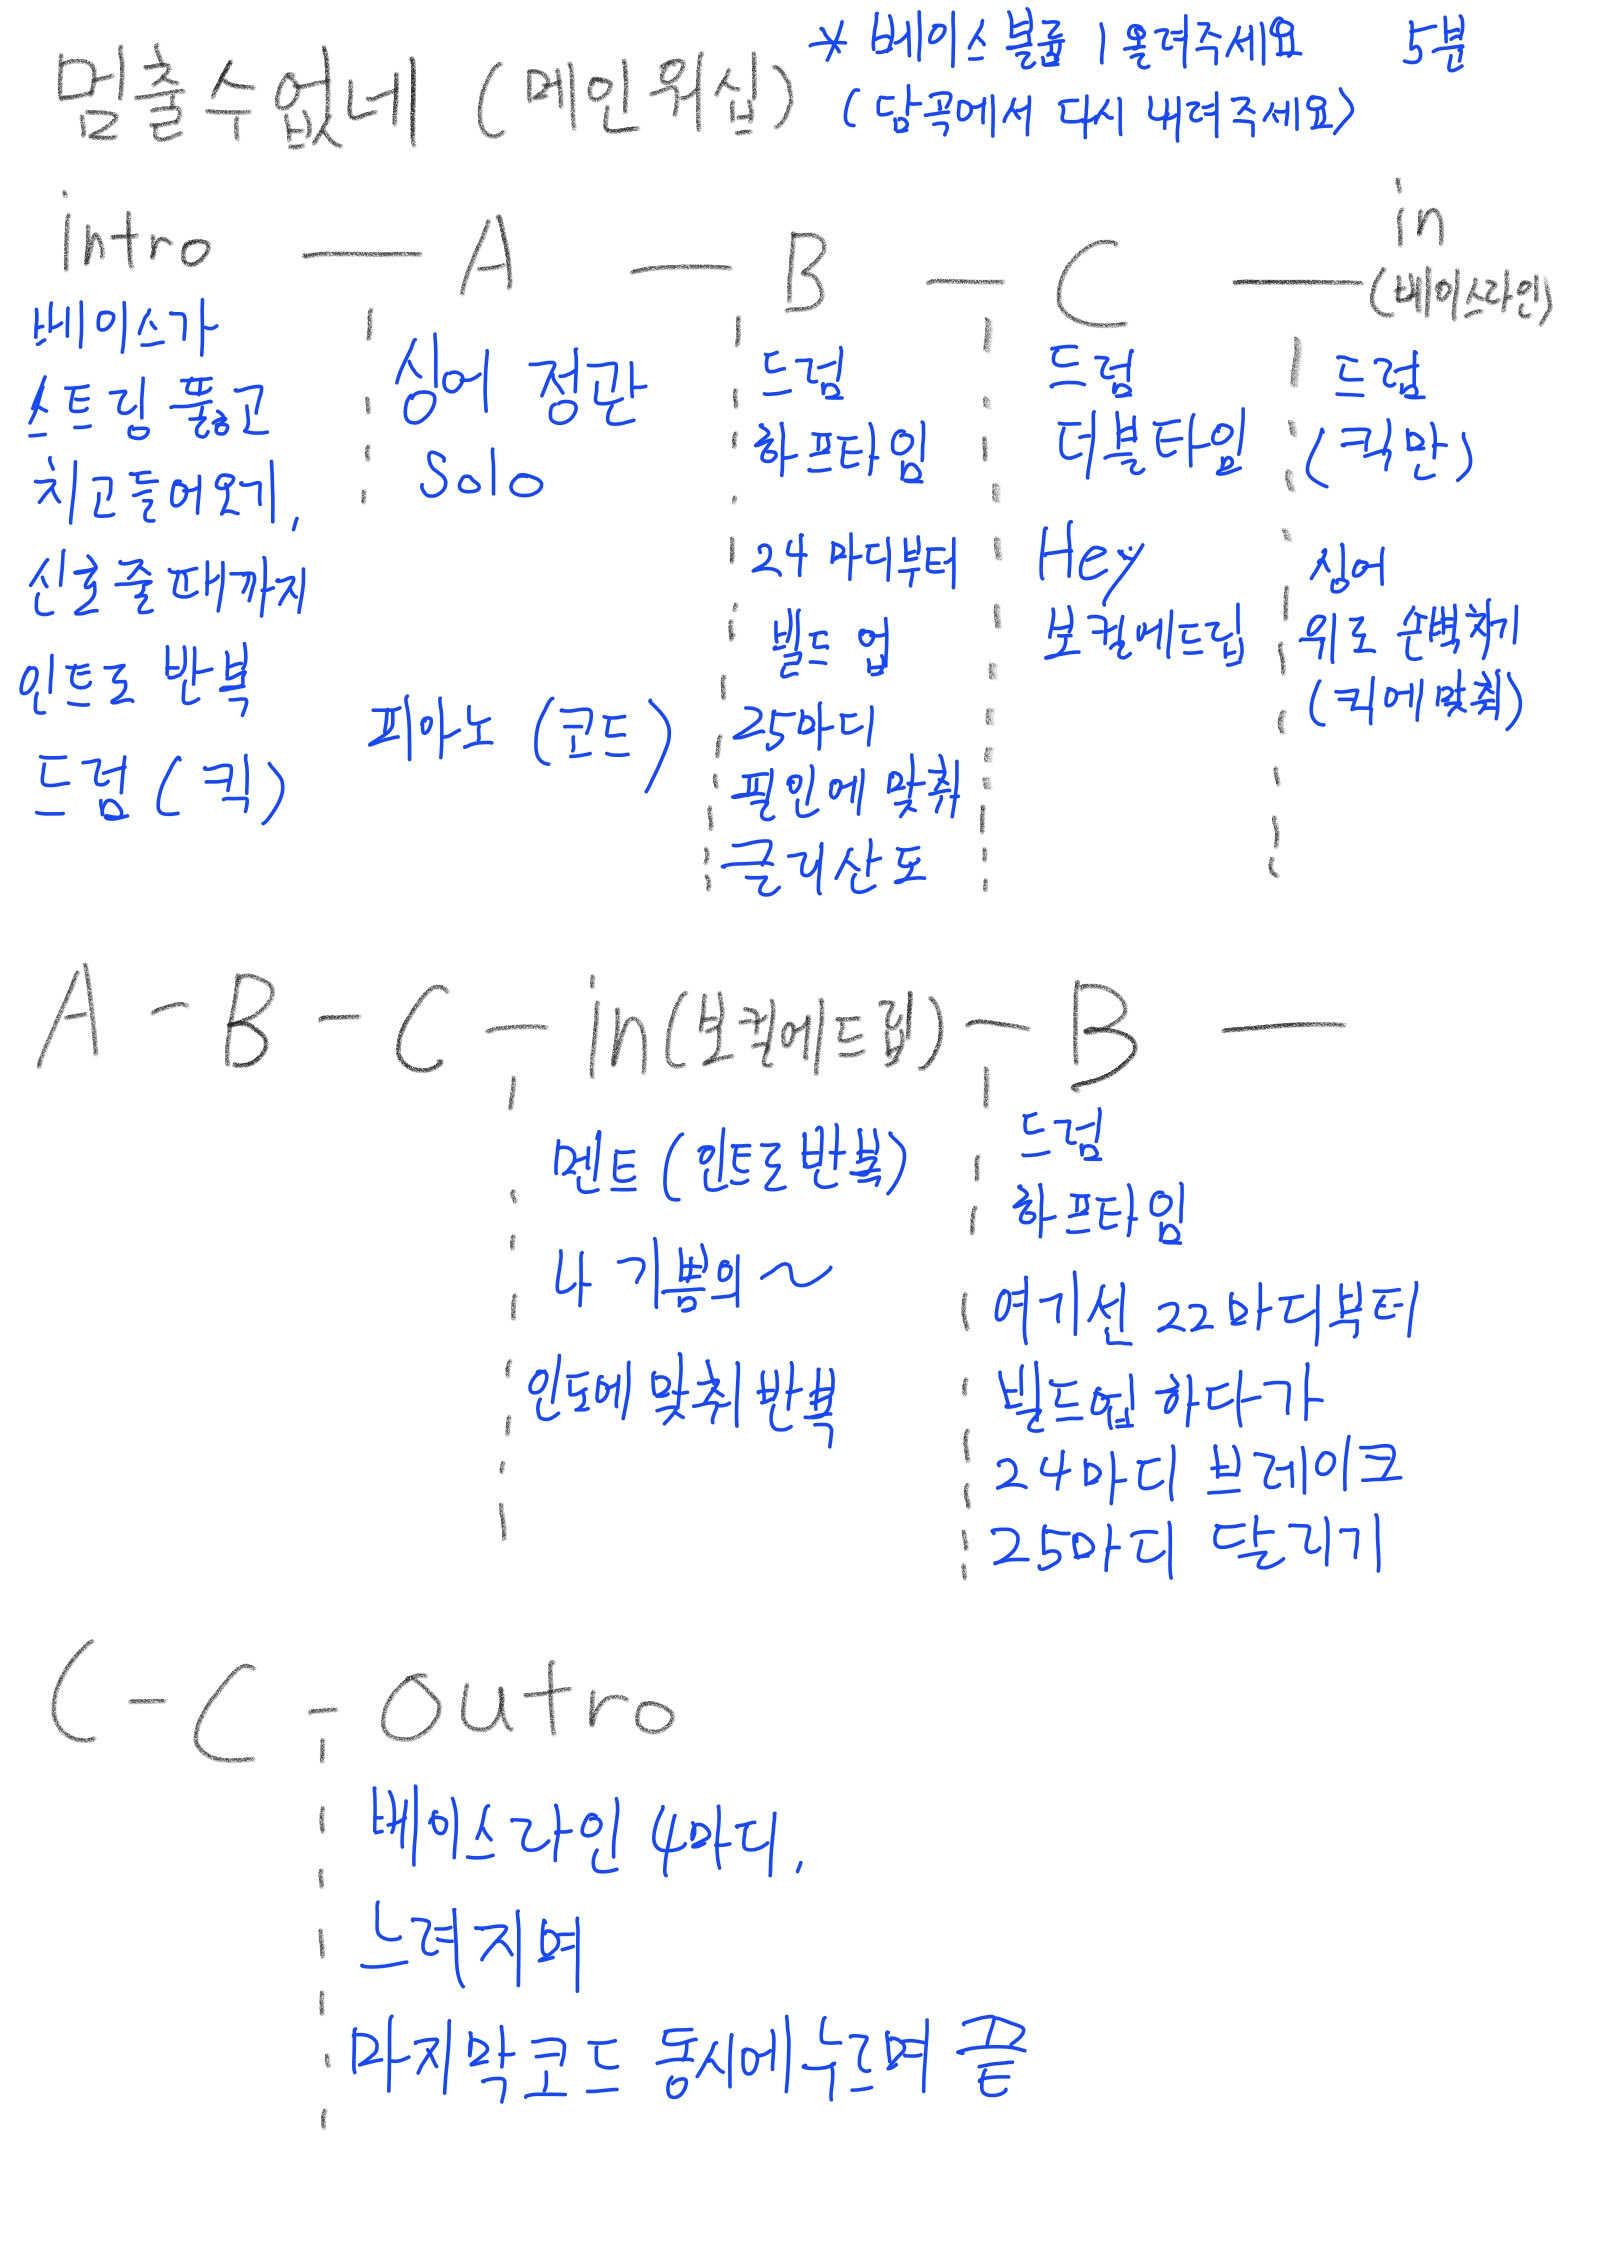 멈출수없네 (메인워십)
* 베이스 볼륨 1 올려주세요 5분
(담곡에서 다시 내려주세요)
intro — A — B — C — in
(베이스라인)
베이스가
스트링 뚫고
치고들어오기,
신호줄때까지
인트로 반복
드럼 (킥)
싱어 정관
Solo
피아노 (코드)
드럼
하프타임
24 마디부터
빌드 업
25마디
필인에 맞춰
글리산도
드럼
더블타임
Hey
보컬에드립
드럼
(킥만)
싱어
위로 손벽치기
(킥에맞춰)
A - B - C - in (보컬에드립) - B —
멘트 (인트로반복)
나 기쁨의 ~
인도에 맞춰 반복
드럼
하프타임
여기선 22마디부터
빌드업 하다가
24마디 브레이크
25마디 달리기
C - C - outro
베이스라인 4마디,
느려지며
마지막코드 동시에누르며 끝